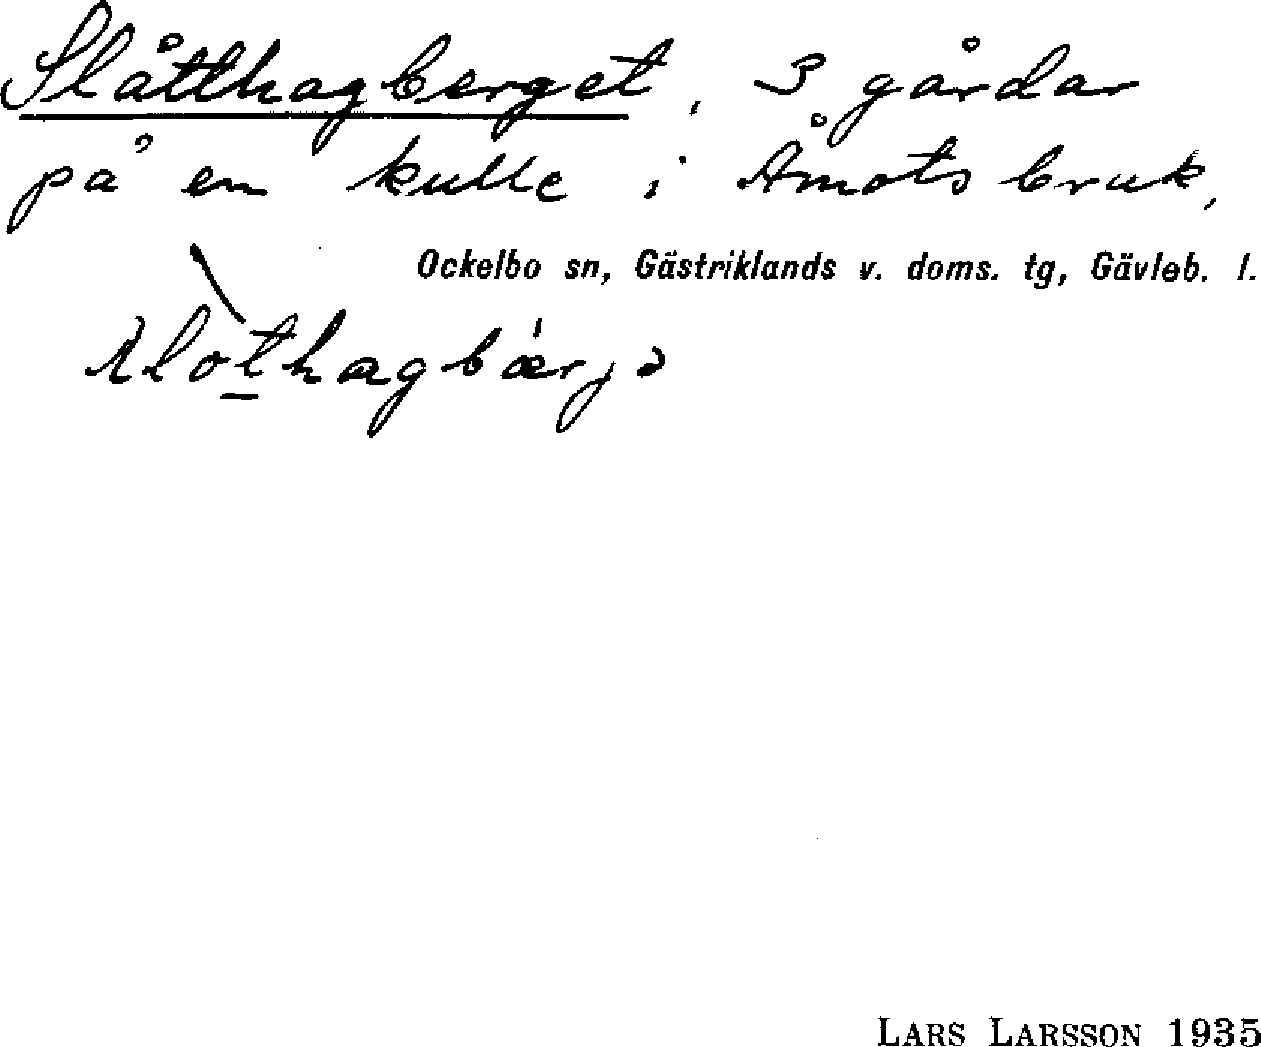 Slåtthagberget, 3 gårdar
på en kulle i Åmots bruk,
Ockelbo sn, Gästriklands v. doms. tg, Gävleb. l.
LARS LARSSON 1935